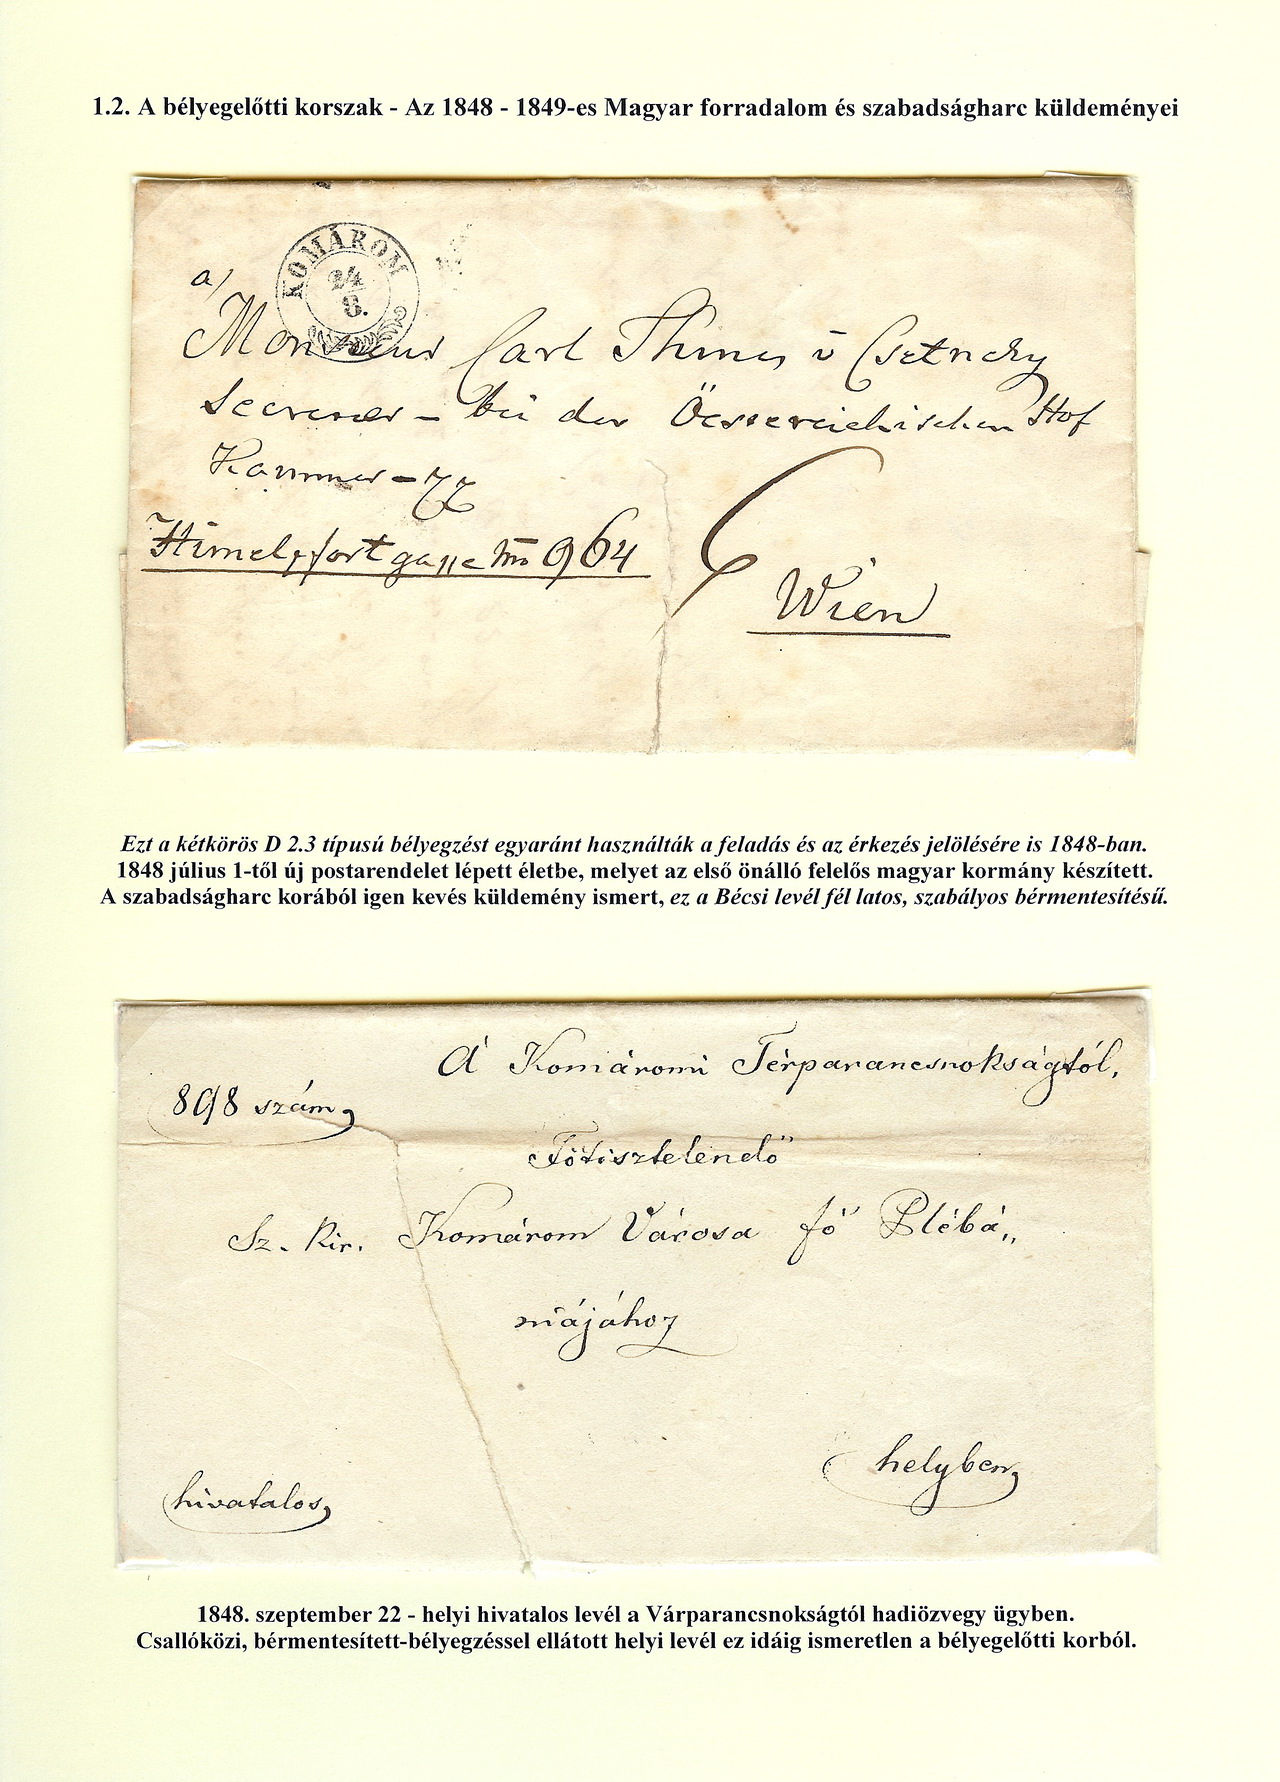 1.2. A bélyegelőtti korszak - Az 1848 - 1849-es Magyar forradalom és szabadságharc küldeményei
KOMÁROM
24
8.
a)
Monsieur Carl Thines v Csetneky
Secretaer - bei der Öesterreichischen Hof
Kammer -
Himelpfortgasse No 964
6
Wien
Ezt a kétkörös D 2.3 típusú bélyegzést egyaránt használták a feladás és az érkezés jelölésére is 1848-ban.
1848 július 1-től új postarendelet lépett életbe, melyet az első önálló felelős magyar kormány készített.
A szabadságharc korából igen kevés küldemény ismert, ez a Bécsi levél fél latos, szabályos bérmentesítésű.
A' Komáromi Térparancsnokságtól,
898 szám
Főtisztelendő
Sz. Kir. Komárom Városa fő Plébá„
niájához
helyben
hivatalos
1848. szeptember 22 - helyi hivatalos levél a Várparancsnokságtól hadiözvegy ügyben.
Csallóközi, bérmentesített-bélyegzéssel ellátott helyi levél ez idáig ismeretlen a bélyegelőtti korból.